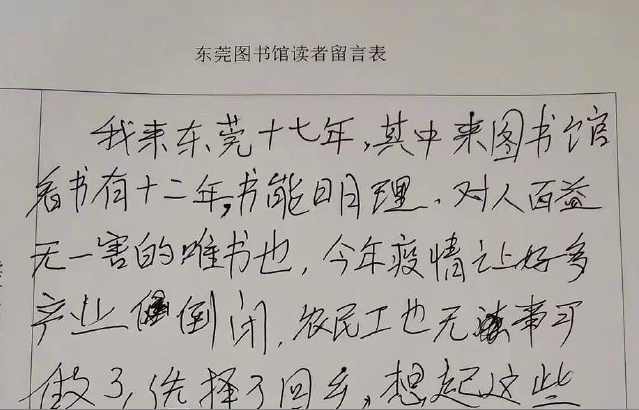 东莞图书馆读者留言表
我来东莞十七年,其中来图书馆
看书有十二年,书能明理,对人百益
无一害的唯书也,今年疫情让好多
产业倒闭,农民工也无事可
做了,选择了回乡,想起这些